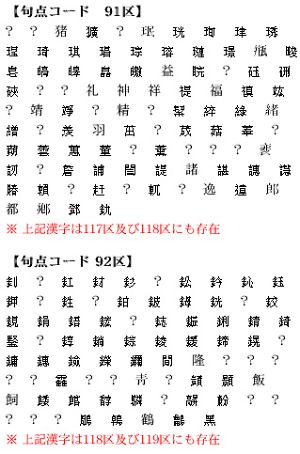 【句点コード 91区】
? ? 猪 獷 ? 珉 珖 珣 珒 琇
珵 琦 琪 琩 琮 瑢 璉 璟 甁 畯
皂 皜 皞 皛 皦 益 睆 ? 砡 硎
硤 ? ? 礼 神 祥 禔 福 禛 竑
? 靖 竫 ? 精 ? 絜 綷 綠 緖
繒 ? 羡 羽 茁 ? 荿 菇 菶 ?
蒴 蕓 蕙 蕫 ? 薰 ? ? ? 裵
訒 ? 詹 誧 誾 諟 諸 諶 譓 譿
賰 賴 ? 赶 ? 軏 ? 逸 遧 郞
都 鄕 鄧 釚
※ 上記漢字は117区及び118区にも存在
【句点コード 92区】
釗 ? 釭 釮 釤 ? 鈆 鈐 鈊 鈺
鉀 ? 鉎 ? 鉑 鈹 鉧 銧 ? 鉸
鋧 鋗 鋙 鋐 ? 鋕 鋠 鋓 錥 錡
鋻 ? 錞 鋿 錝 錂 鍰 鍗 鎤 ?
鏞 鏸 鐱 鑅 鑈 閒 隆 ? ? ?
? ? 靃 ? ? 靑 ? 顗 顥 飯
飼 餧 館 馞 驎 ? 髜 魵 ? ?
? ? ? 鵰 鵫 鶴 鸙 黑
※ 上記漢字は118区及び119区にも存在